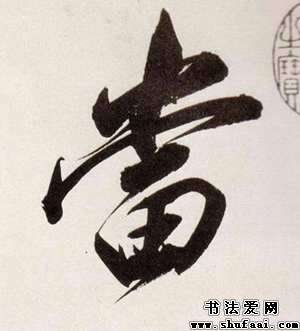 當
之寶
书法爱网
www.shufaai.com